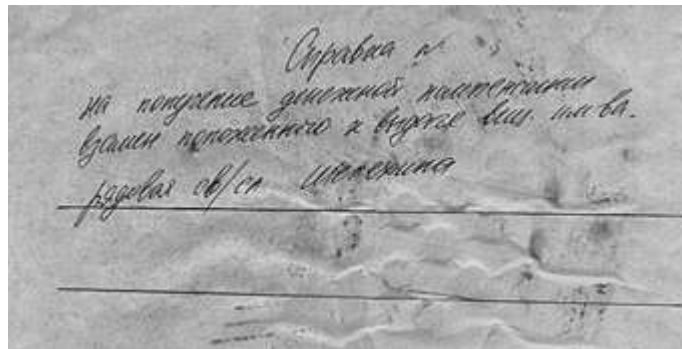 Справка №
на получение денежной компенсации
взамен положенного к выдаче вещ. им-ва.
рядовая св/сл Шепехина